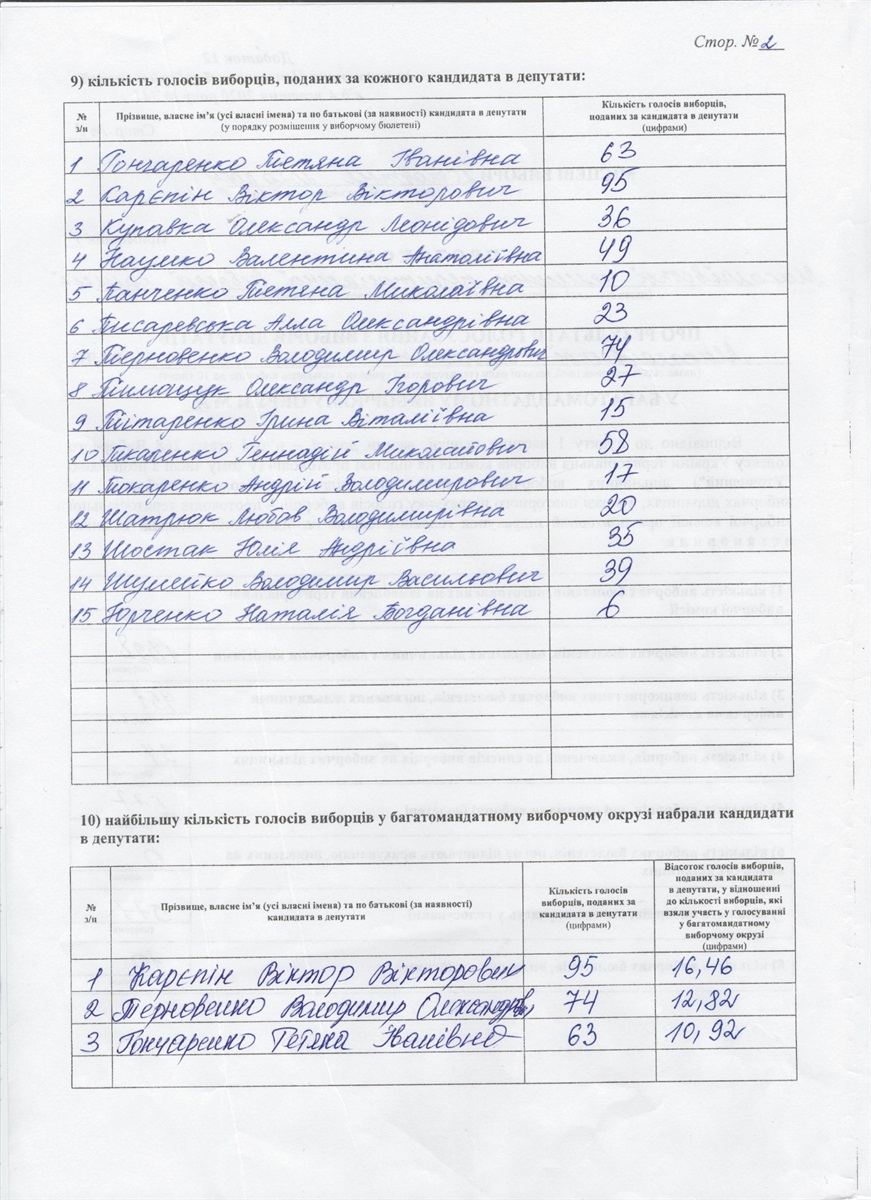 Стор. № 2
9) кількість голосів виборців, поданих за кожного кандидата в депутати:
№ з/п
Прізвище, власне ім’я (усі власні імена) та по батькові (за наявності) кандидата в депутати
(у порядку розміщення у виборчому бюлетені)
Кількість голосів виборців,
поданих за кандидата в депутати
(цифрами)
1 Гончаренко Тетяна Іванівна 63
2 Карєпін Віктор Вікторович 95
3 Купавка Олександр Леонідович 36
4 Наумко Валентина Анатоліївна 49
5 Панченко Тетяна Миколаївна 10
6 Писаревська Алла Олександрівна 23
7 Терновенко Володимир Олександрович 74
8 Тимощук Олександр Ігорович 27
9 Титаренко Ірина Віталіївна 15
10 Ткаренко Геннадій Миколайович 58
11 Токаренко Андрій Володимирович 17
12 Шатрюк Любов Володимирівна 20
13 Шостак Юлія Андріївна 35
14 Шумейко Володимир Васильович 39
15 Юрченко Наталія Богданівна 6
10) найбільшу кількість голосів виборців у багатомандатному виборчому окрузі набрали кандидати
в депутати:
№ з/п
Прізвище, власне ім’я (усі власні імена) та по батькові (за наявності)
кандидата в депутати
Кількість голосів
виборців, поданих за
кандидата в депутати
(цифрами)
Відсоток голосів виборців,
поданих за кандидата
в депутати, у відношенні
до кількості виборців, які
взяли участь у голосуванні
у багатомандатному
виборчому окрузі
(цифрами)
1 Карєпін Віктор Вікторович 95 16,46
2 Терновенко Володимир Олександрович 74 12,82
3 Гончаренко Тетяна Іванівна 63 10,92